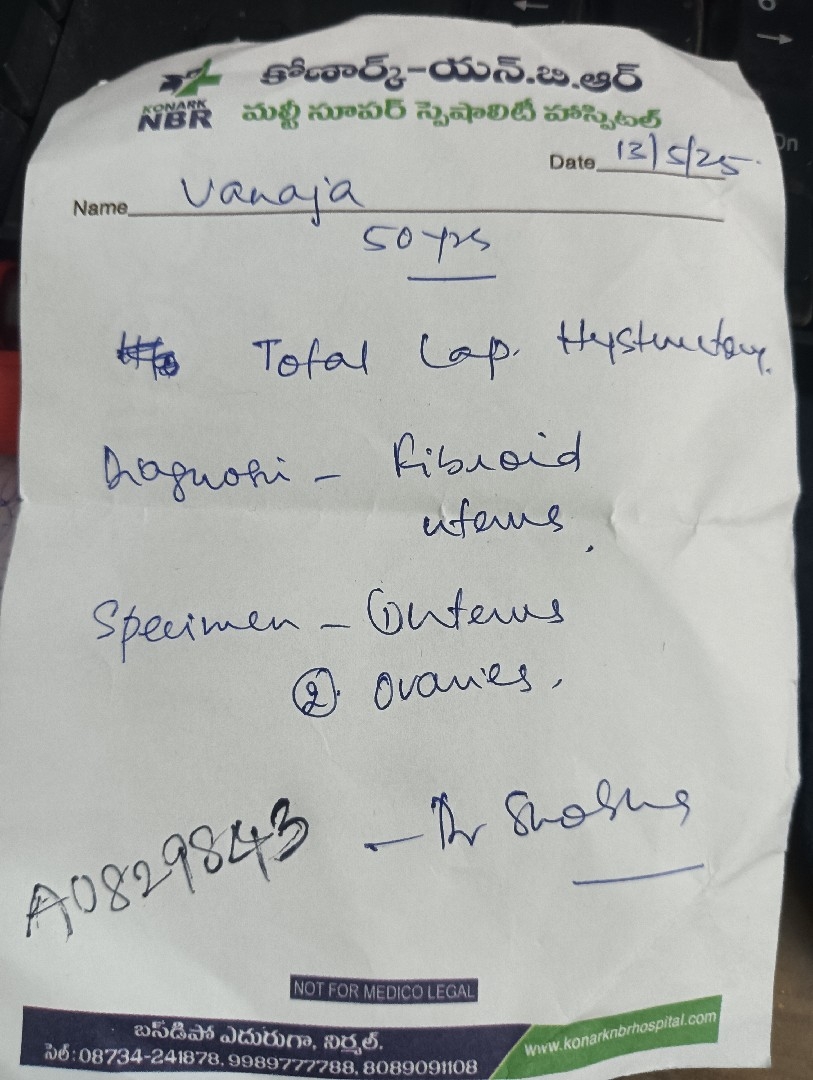 KONARK
NBR
కోణార్క్-యన్.బి.ఆర్
మల్టీ సూపర్ స్పెషాలిటీ హాస్పిటల్
Date 13/5/25.
Name Vanaja
50 yrs
Total Lap. Hysterectomy.
Diagnosis - Fibroid
uterus.
Specimen - ① Uterus
②. Ovaries.
- Dr Shobha
A0829843
NOT FOR MEDICO LEGAL
బస్‌డిపో ఎదురుగా, నిర్మల్.
సెల్: 08734-241878, 9989777788, 8089091108
www.konarknbrhospital.com